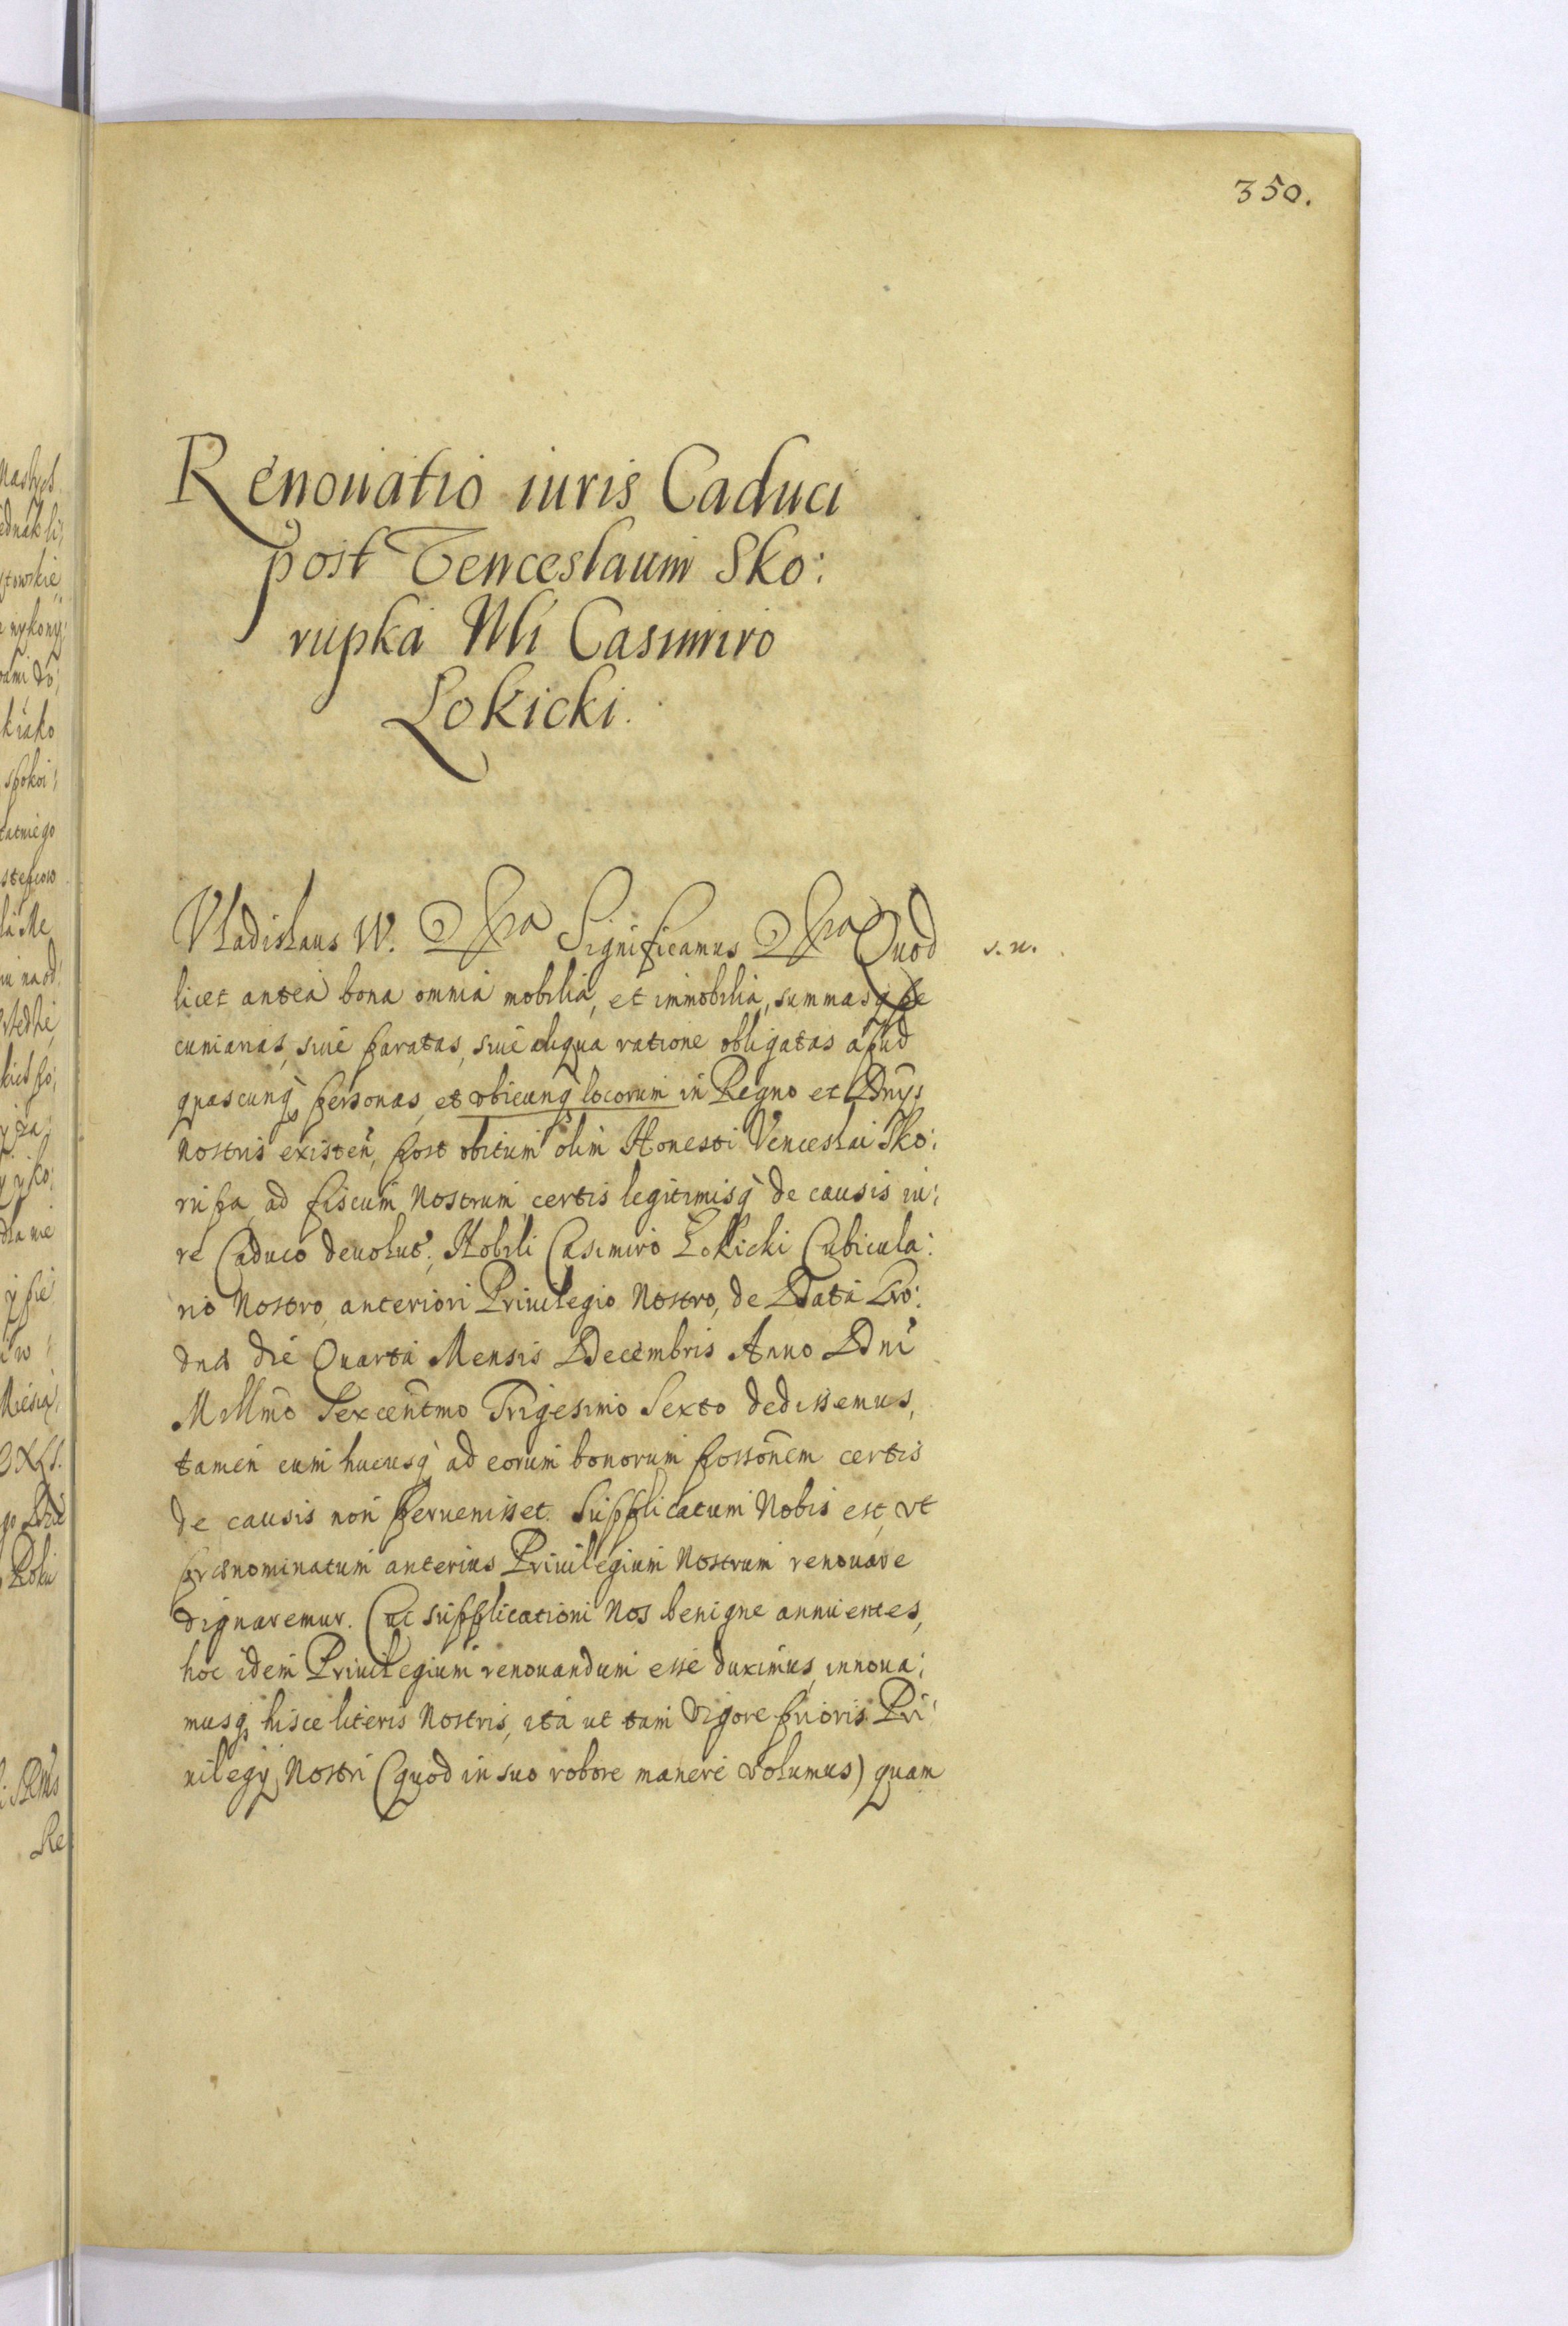 350.
Renouatio iuris Caduci
post Venceslaum Sko:
rupka Nli Casimiro
Lokicki.
Vladislaus IV. Significamus Quod
s. n.
licet antea bona omnia mobilia, et immobilia, summasq pe
cuniarias, siue paratas, siue aliqua ratione obligatas apud
quascunq personas, et vbicunq locorum in Regno et Dnijs
nostris existen, post obitum olim Honesti Venceslai Sko:
rupa, ad fiscum Nostrum, certis legitimisq de causis iu:
re Caduco deuolut, Nobili Casimiro Lokicki Cubicula:
rio Nostro, anteriori Priuilegio Nostro, de Data Gro:
dna die Quarta Mensis Decembris Anno Dni
Millmo Sexcentmo Trigesimo Sexto dedissemus,
tamen cum hucusq ad eorum bonorum possonem certis
de causis non peruenisset. Supplicatum Nobis est, vt
prænominatum anterius Priuilegium Nostrum renouare
dignaremur. Cui supplicationi Nos benigne annuentes,
hoc idem Priuilegium renouandum esse duximus, innoua:
musq hisce literis Nostris, ita ut tam vigore prioris Pri:
uilegij Nostri (quod in suo robore manere volumus) quam